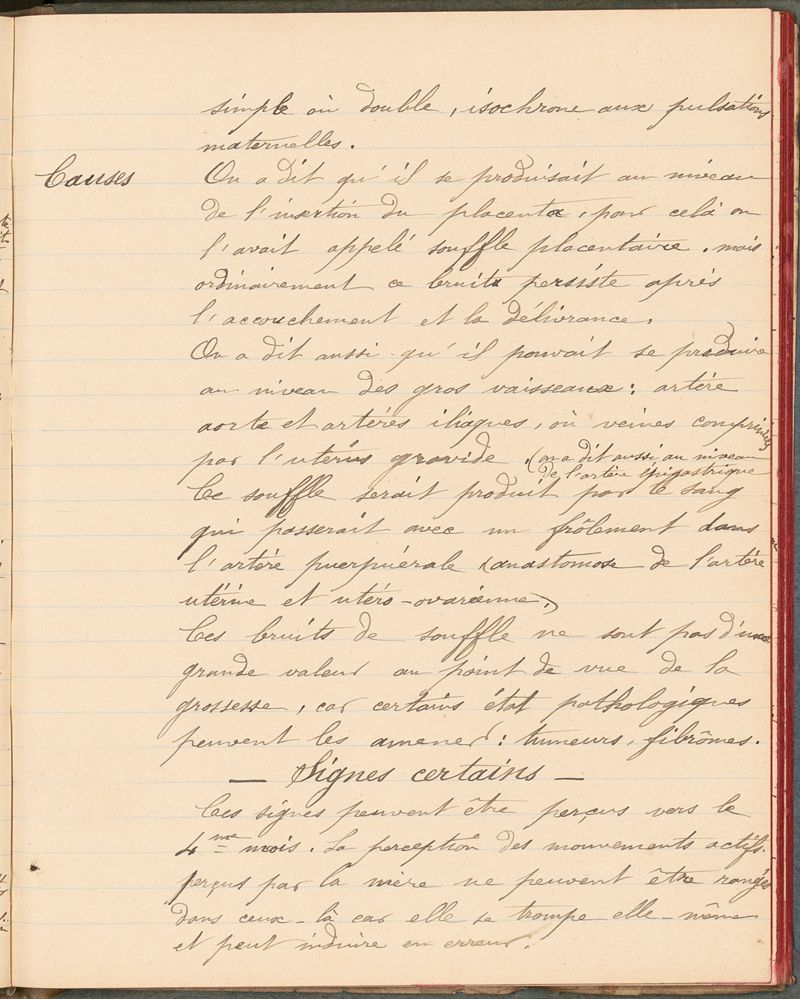 simple où double, isochrone aux pulsations
maternelles.
Causes
On a dit qu'il se produisait au niveau
de l'insertion du placenta, pour celà on
l'avait appelé souffle placentaire. mais
ordinairement ce bruit persiste après
l'accouchement et la délivrance.
On a dit aussi qu'il pouvait se produire
au niveau des gros vaisseaux : artère
aorte et artères iliaques, où veines comprimées
par l'utérus gravide. (on a dit aussi au niveau
de l'artère épigastrique
Ce souffle serait produit par le sang
qui passerait avec un frôlement dans
l'artère puerpuérale (anastomose de l'artère
utérine et utéro-ovarienne.)
Ces bruits de souffle ne sont pas d'une
grande valeur au point de vue de la
grossesse, car certains état pathologiques
peuvent les amener : tumeurs, fibrômes.
— Signes certains —
Ces signes peuvent être perçus vers le
4me mois. La perception des mouvements actifs
perçus par la mère ne peuvent être rangés
dans ceux-là car elle se trompe elle-même
et peut induire en erreur.